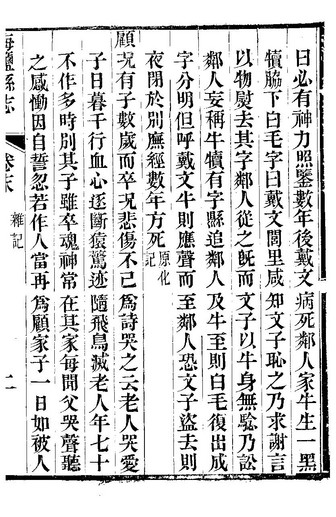 曰必有神力照鑒數年後戴文病死鄰家牛生一黑
犢脇下白毛字曰戴文閭里咸知文子恥之乃求謝言
以物熨去其字鄰人從之旣而文子以牛身無驗乃訟
鄰人妄稱牛犢有字縣追鄰人及牛至則白毛復出成
字分明但呼戴文牛則應聲而至鄰人恐文子盜去則
夜閉於別廡經數年方死原化記
顧況有子數歲而卒況悲傷不已爲詩哭之云老人哭愛
子日暮千行血心逐斷猿驚迹隨飛鳥滅老人年七十
不作多時別其子雖卒魂神常在其家每聞父哭聲聽
之感慟因自誓忽若作人當再爲顧家子一日如被人
海鹽縣志
卷末
雜記
二